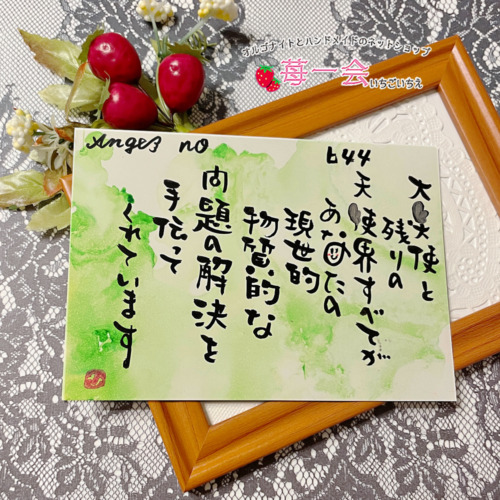 オルゴナイトとハンドメイドのネットショップ
苺一会いちごいちえ
Angel no 644
大天使と
残りの
天使界すべてが
あなたの
現世的
物質的な
問題の解決を
手伝って
くれています